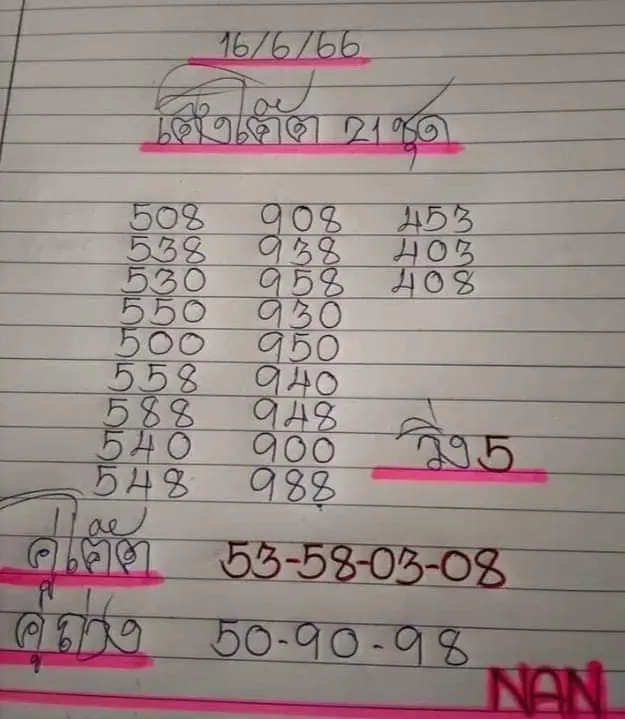 16/6/66
เต็งโต๊ด 21 ชุด
508 908 453
538 938 403
530 958 408
550 930
500 950
558 940
588 948
540 900
548 988
วิ่ง 5
53-58-03-08
50-90-98
NAN